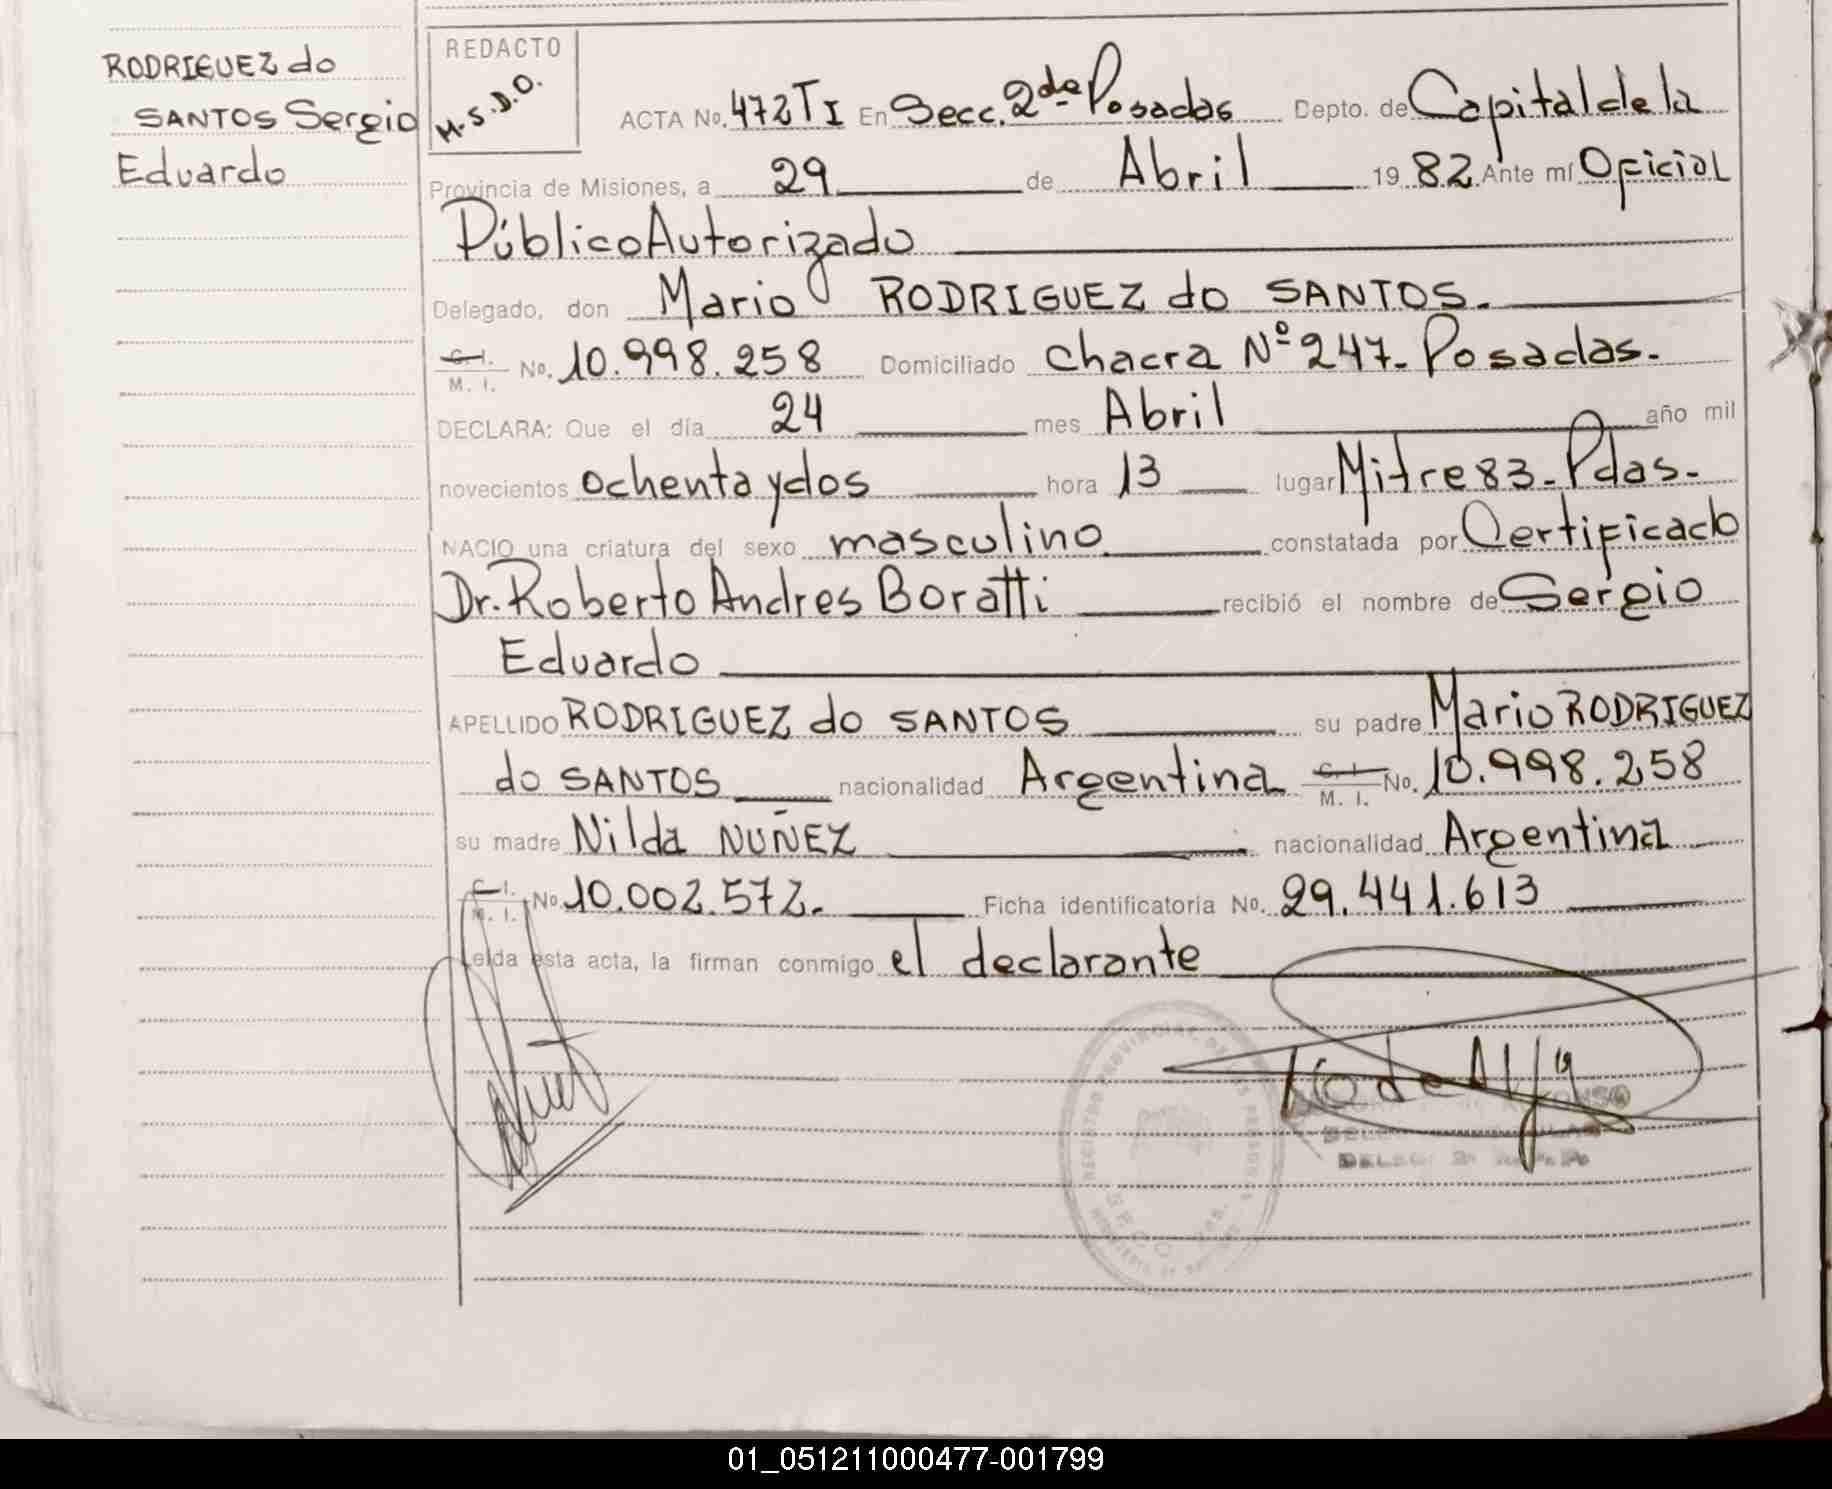 RODRIGUEZ do
SANTOS Sergio
Eduardo
REDACTO
M.S.D.O.
ACTA No. 472 T I En Secc. 2da Posadas Depto. de Capital de la
Provincia de Misiones, a 29 de Abril 1982 Ante mí Oficial
Público Autorizado
Delegado, don Mario RODRIGUEZ do SANTOS.
C. I. M. I. No. 10.998.258 Domiciliado Chacra Nº 247- Posadas.
DECLARA: Que el día 24 mes Abril año mil
novecientos ochenta y dos hora 13 lugar Mitre 83- Pdas-
NACIO una criatura del sexo masculino constatada por Certificado
Dr. Roberto Andres Boratti recibió el nombre de Sergio
Eduardo
APELLIDO RODRIGUEZ do SANTOS su padre Mario RODRIGUEZ
do SANTOS nacionalidad Argentina C. I. M. I. No. 10.998.258
su madre Nilda NUÑEZ nacionalidad Argentina
C. I. M. I. No 10.002.572. Ficha identificatoria No. 29.441.613
Leída esta acta, la firman conmigo el declarante
REGISTRO PROVINCIAL DE LAS PERSONAS
SECC.
01_051211000477-001799